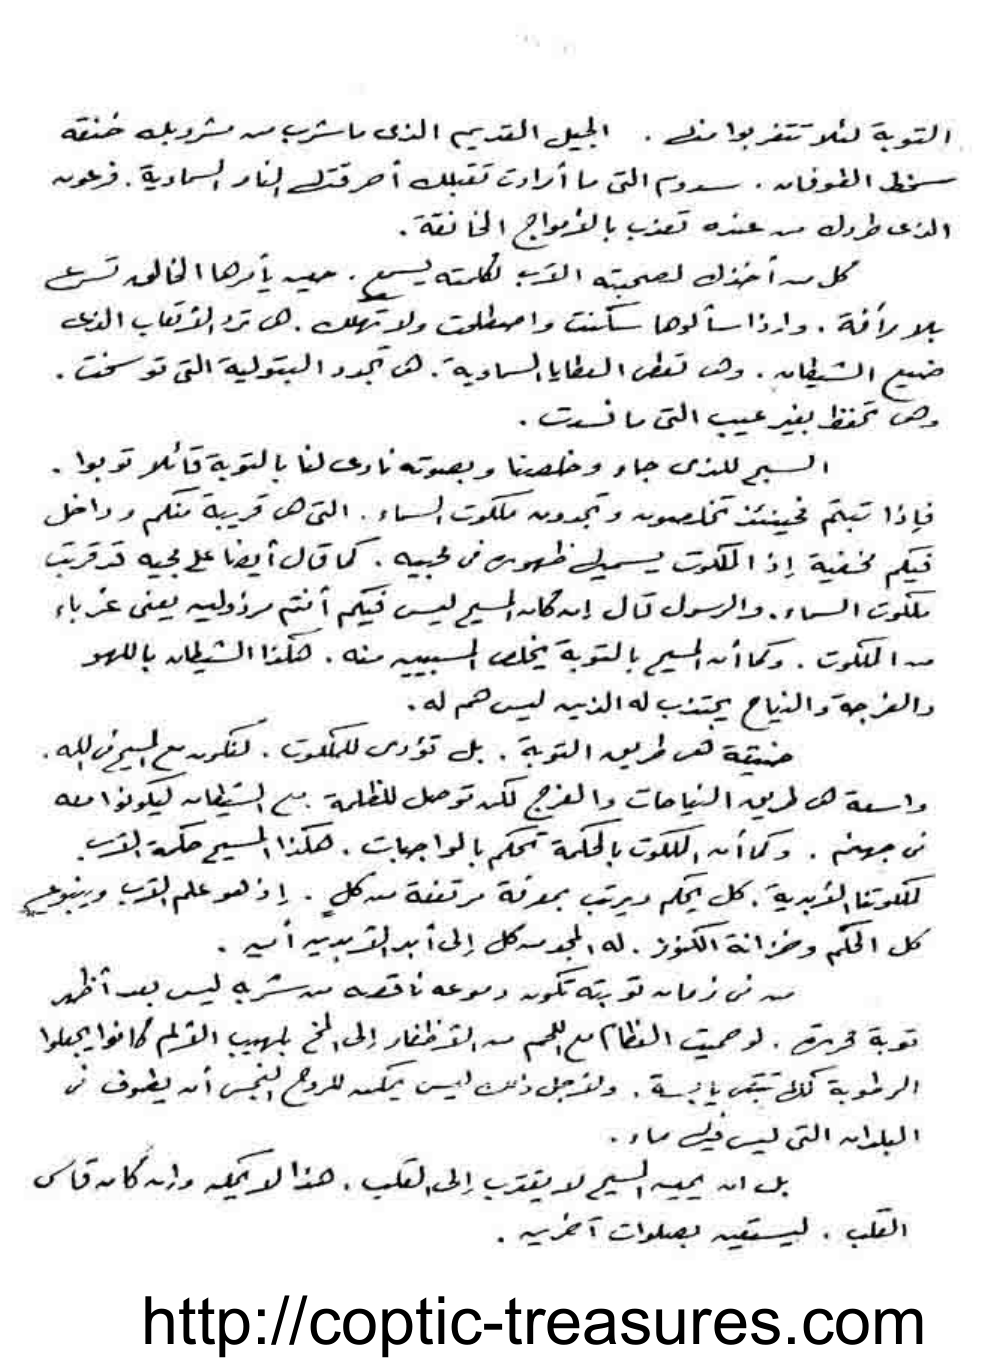 التوبة لئلا تتغربوا منك . الجيل القديم الذى ما شرب من مشروبك خنقه
سخط الطوفان . سدوم التى ما أرادت تقبلك أحرقتك النار السماوية . فرعون
الذى طردك من عنده تعذب بالأمواج الخانقة .
كل من أخذك لصحبته الآب لكلمته يسمع . حين يأمرها الخالق تسرع
بلا رأفة . واذا سألوها سكنت واصطلحت ولا تهلك . هى ترد الأتعاب الذى
ضيع الشيطان . وهى تعطى العطايا السماوية . هى تجدد البتولية التى توسخت .
وهى تحفظ بغير عيب التى ما فسدت .
السبح للذى جاء وخلصنا وبصوته نادى لنا بالتوبة قائلا توبوا .
فإذا تبتم فحينئذ تخلصون وتجدون ملكوت السماء . التى هى قريبة منكم وداخل
فيكم مخفية إذ الملكوت يسمى ظهوره فى محبيه . كما قال أيضا على مجيه قد قربت
ملكوت السماء . والرسول قال إن كان المسيح ليس فيكم أنتم مرذولين يعنى غرباء
من الملكوت . وكما أن المسيح بالتوبة يخلص المسبيين منه . هكذا الشيطان باللهو
والفرجة والنياح يجتذب له الذين ليس هم له .
ضيقة هى طريق التوبة . بل تؤدى للملكوت . لنكون مع المسيح فى الله .
واسعة هى طريق النياحات والفرج لكن توصل للظلمة مع الشيطان ليكونوا معه
فى جهنم . وكما أن الملكوت بالحكمة تحكم بالواجبات . هكذا المسيح حكمة الآب
لملكوتنا الأبدية . كل يحكم ويرتب بمعرفة مرتفعة من كل . إذ هو علم الآب وينبوع
كل الحكم وخزانة الكنوز . له المجد من كل إلى أبد الآبدين أمين .
من فى زمان توبته تكون دموعه ناقصه من شربه ليس بعد أظهر
توبة محررة . لو حميت العظام مع اللحم من الأظفار إلى المخ بلهيب الألم كانوا يجعلوا
الرطوبة كلها تبقى يابسة . ولأجل ذلك ليس يمكن للروح النجس أن يطوف فى
البلدان التى ليس فيها ماء .
بل ان يمين المسيح لا يقترب إلى القلب . هذا لا يمكن وان كان قاسى
القلب . ليستعين بصلوات آخرين .
http://coptic-treasures.com